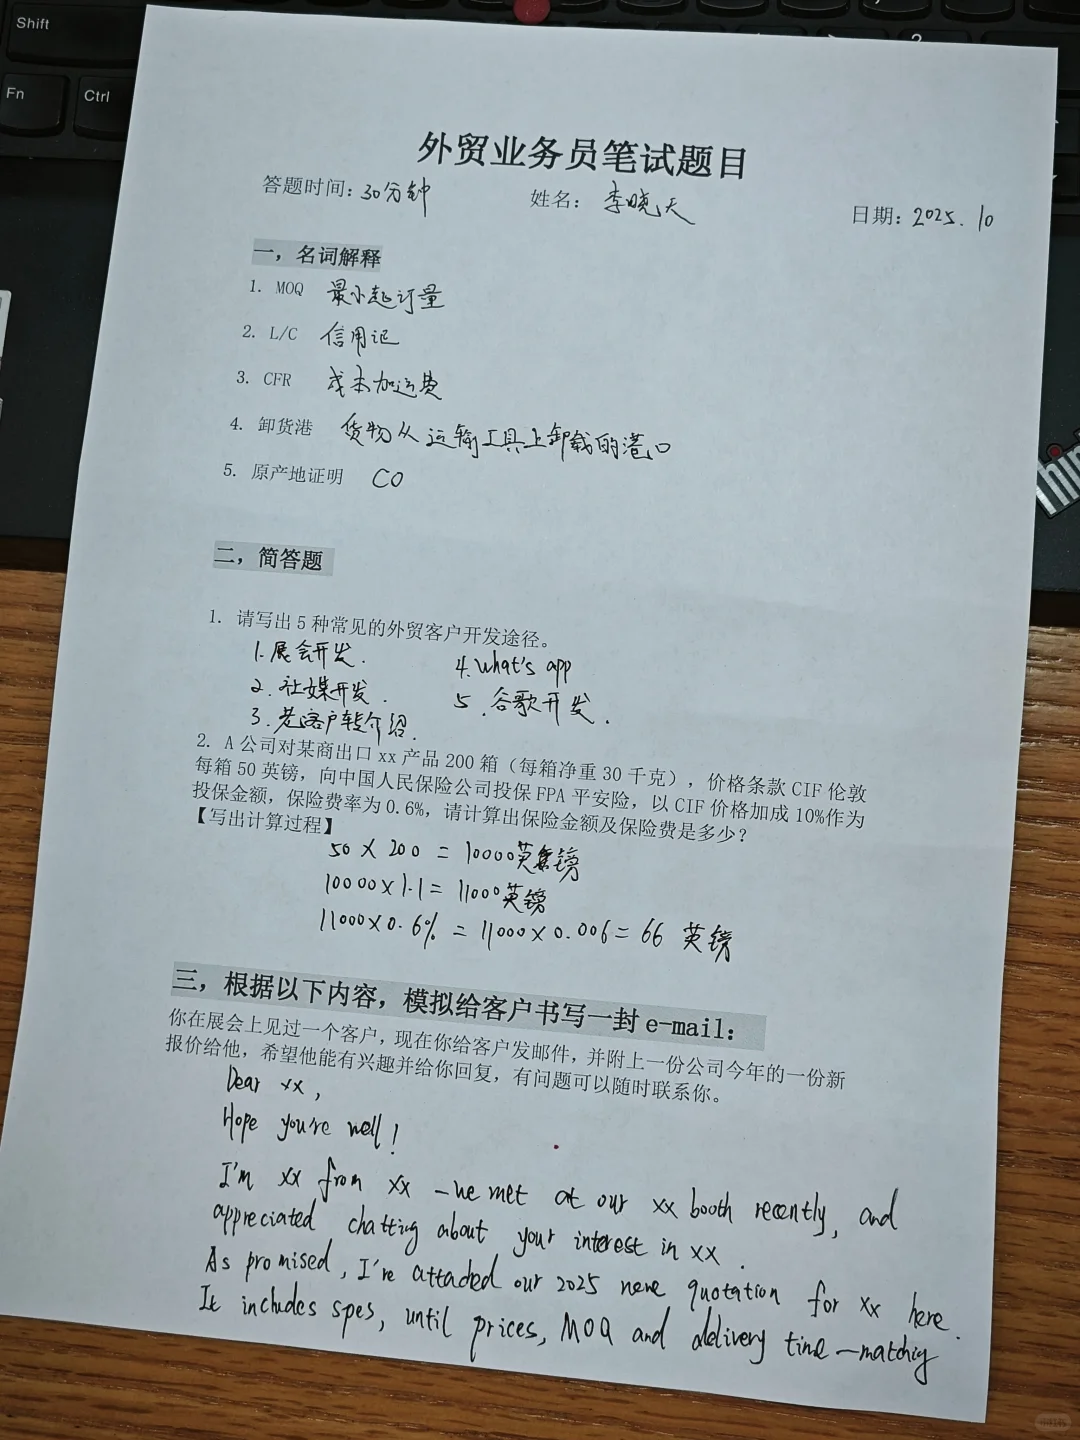 Shift
Fn
Ctrl
外贸业务员笔试题目
答题时间：30分钟 姓名：李晓天 日期：2025.10
一，名词解释
1. MOQ 最小起订量
2. L/C 信用证
3. CFR 成本加运费
4. 卸货港 货物从运输工具上卸载的港口
5. 原产地证明 CO
二，简答题
1. 请写出5种常见的外贸客户开发途径。
1.展会开发. 4.what's app
2.社媒开发. 5.谷歌开发.
3.老客户转介绍.
2. A公司对某商出口xx产品200箱（每箱净重30千克），价格条款CIF伦敦
每箱50英镑，向中国人民保险公司投保FPA平安险，以CIF价格加成10%作为
投保金额，保险费率为0.6%，请计算出保险金额及保险费是多少？
【写出计算过程】
50 X 200 = 10000英镑
10000 x 1.1 = 11000英镑
11000 X 0.6% = 11000 X 0.006 = 66 英镑
三，根据以下内容，模拟给客户书写一封e-mail：
你在展会上见过一个客户，现在你给客户发邮件，并附上一份公司今年的一份新
报价给他，希望他能有兴趣并给你回复，有问题可以随时联系你。
Dear xx,
Hope you're well!
I'm xx from xx -we met at our xx booth recently, and
appreciated chatting about your interest in xx.
As promised, I've attached our 2025 new quotation for xx here.
It includes spes, until prices, MOQ and delivery time -matching
Thin